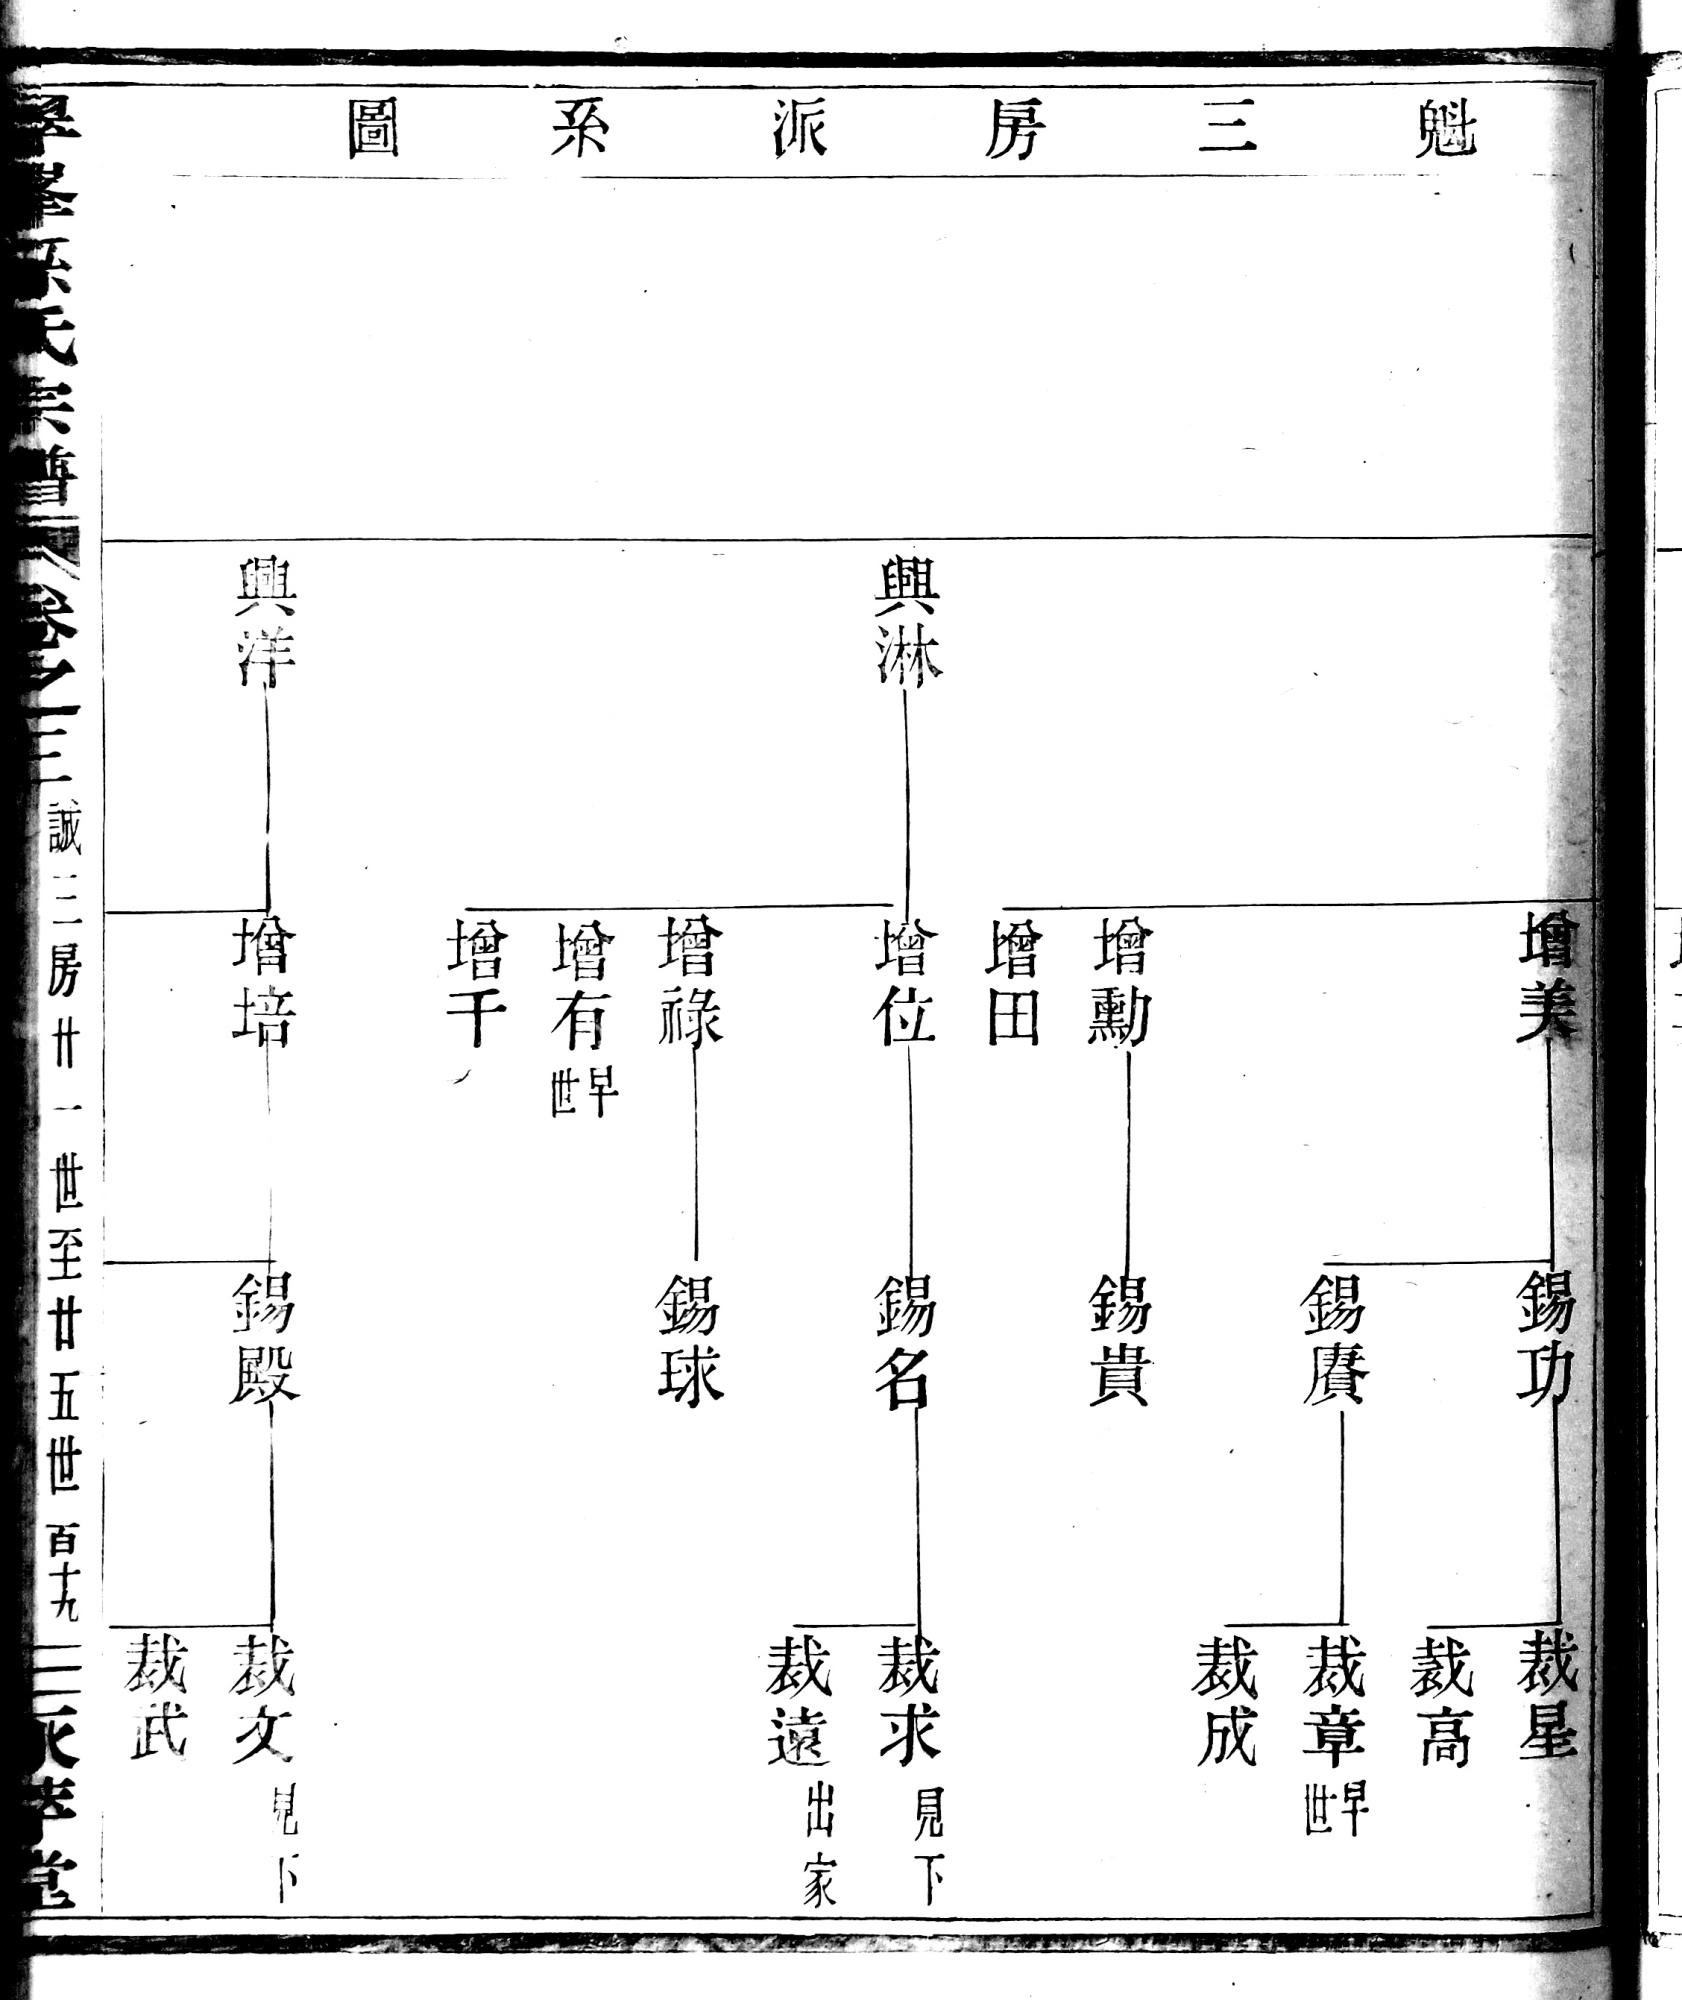 魁三房派系圖
興淋
興洋
增美
增勳
增田
增位
增祿
增有早世
增千
增培
錫功
錫賡
錫貴
錫名
錫球
錫殿
裁星
裁高
裁章早世
裁成
裁求見下
裁遠出家
裁文見下
裁武
氏宗譜
卷之三
誠三房廿一世至廿五世
百十九
堂